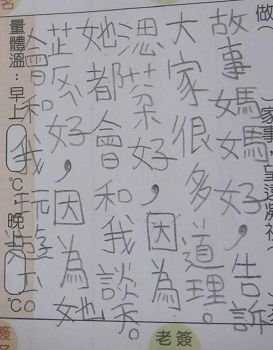 做(
故事媽媽好,告訴
大家很多道理。
好,因為
她都會和我談天。
好,因為她
會和我玩
量體溫:早上 ℃ 晚上 ℃
老簽